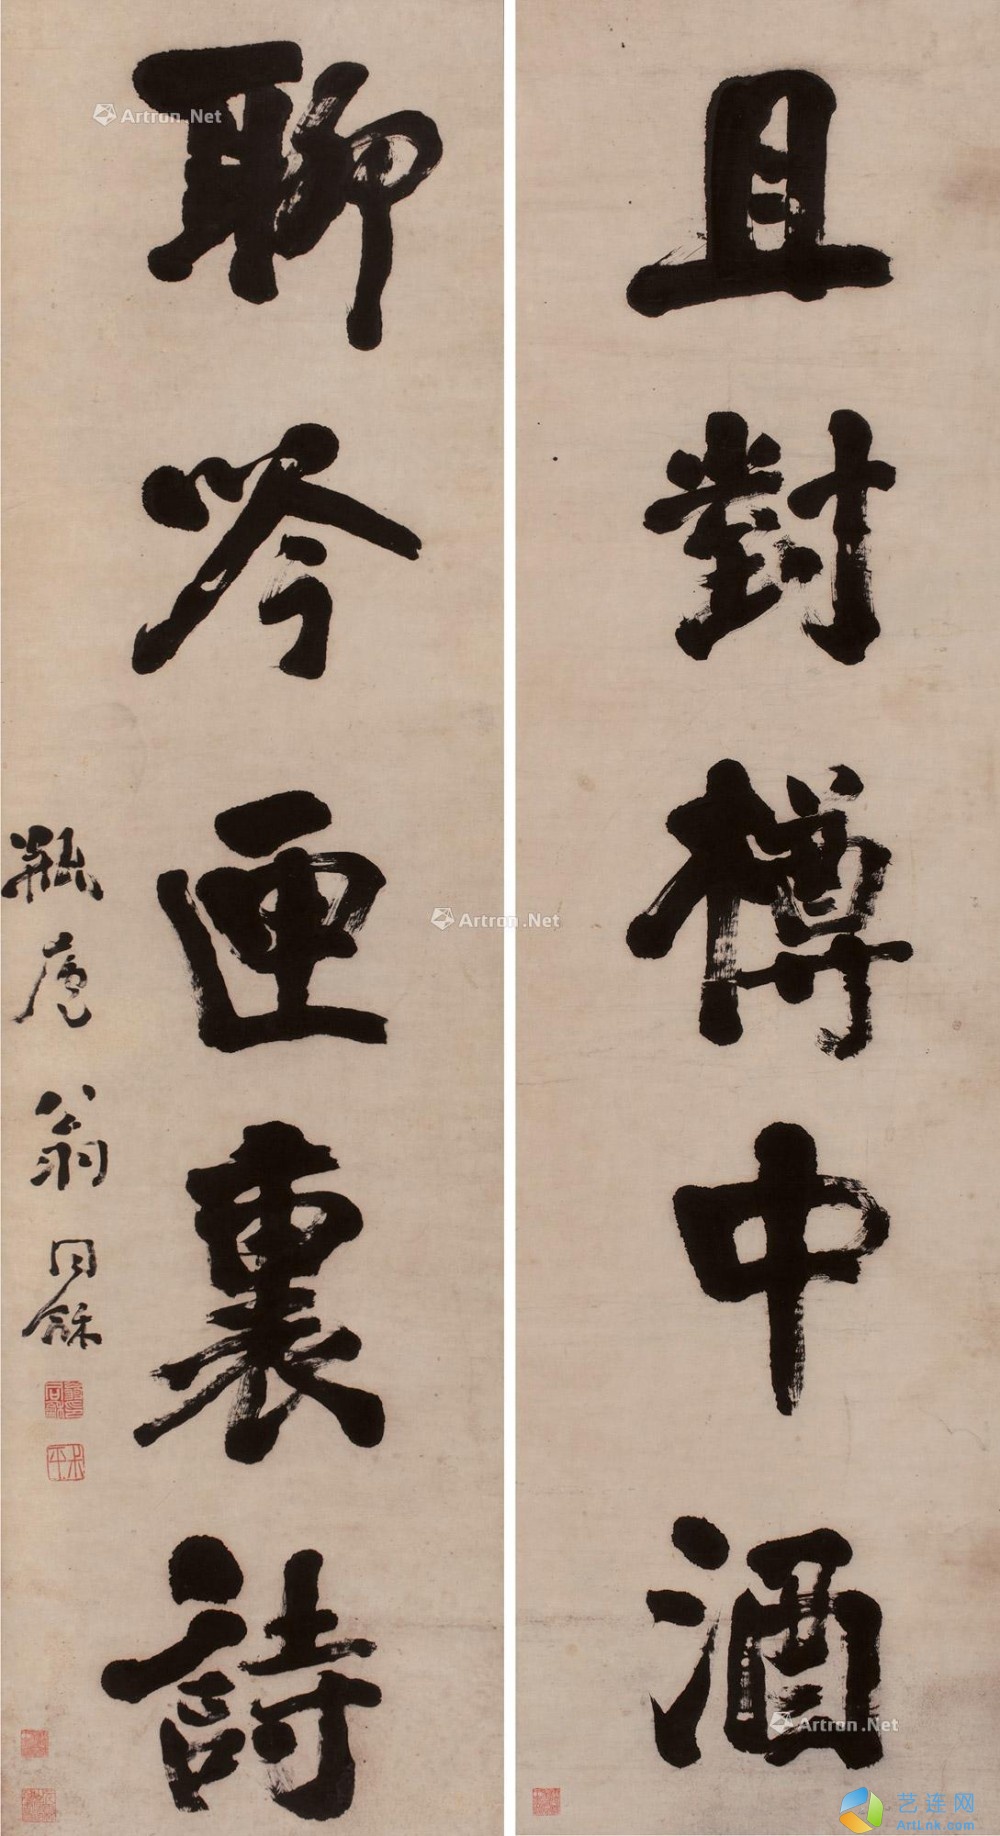 且對樽中酒
聊吟匣裏詩
瓶廬翁同龢
Artron.Net
Artron.Net
Artron.Net
艺连网
ArtLnk.com